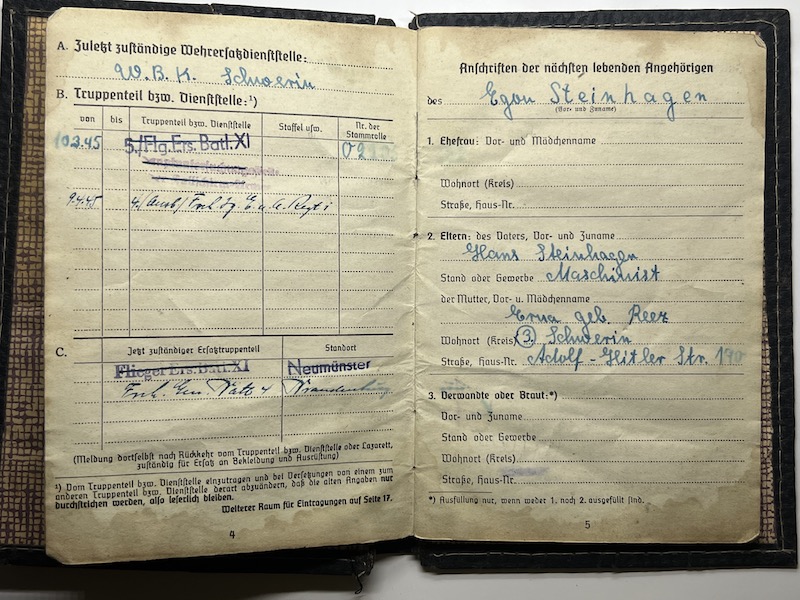 A. Zuletzt zuständige Wehrersatzdienststelle:
W.B.K. Schwerin
B. Truppenteil bzw. Dienststelle:¹)
von bis Truppenteil bzw. Dienststelle Staffel usw. Nr. der Stammrolle
5./Flg. Ers. Batl. XI
9.4.45
C. Jetzt zuständiger Ersatztruppenteil Standort
Flieger Ers. Batl. XI Neumünster
Brandenburg
(Meldung dortselbst nach Rückkehr vom Truppenteil bzw. Dienststelle oder Lazarett,
zuständig für Ersatz an Bekleidung und Ausrüstung)
¹) Vom Truppenteil bzw. Dienststelle einzutragen und bei Versetzungen von einem zum
anderen Truppenteil bzw. Dienststelle derart abzuändern, daß die alten Angaben nur
durchstrichen werden, also leserlich bleiben.
Weiterer Raum für Eintragungen auf Seite 17.
4
Anschriften der nächsten lebenden Angehörigen
des Egon Steinhagen
(Vor- und Zuname)
1. Ehefrau: Vor- und Mädchenname
Wohnort (Kreis)
Straße, Haus-Nr.
2. Eltern: des Vaters, Vor- und Zuname
Hans Steinhagen
Stand oder Gewerbe Maschinist
der Mutter, Vor- u. Mädchenname
Erna geb. Reez
Wohnort (Kreis) 3 Schwerin
Straße, Haus-Nr. Adolf-Hitler Str. 190
3. Verwandte oder Braut:*)
Vor- und Zuname
Stand oder Gewerbe
Wohnort (Kreis)
Straße, Haus-Nr.
*) Ausfüllung nur, wenn weder 1. noch 2. ausgefüllt sind.
5